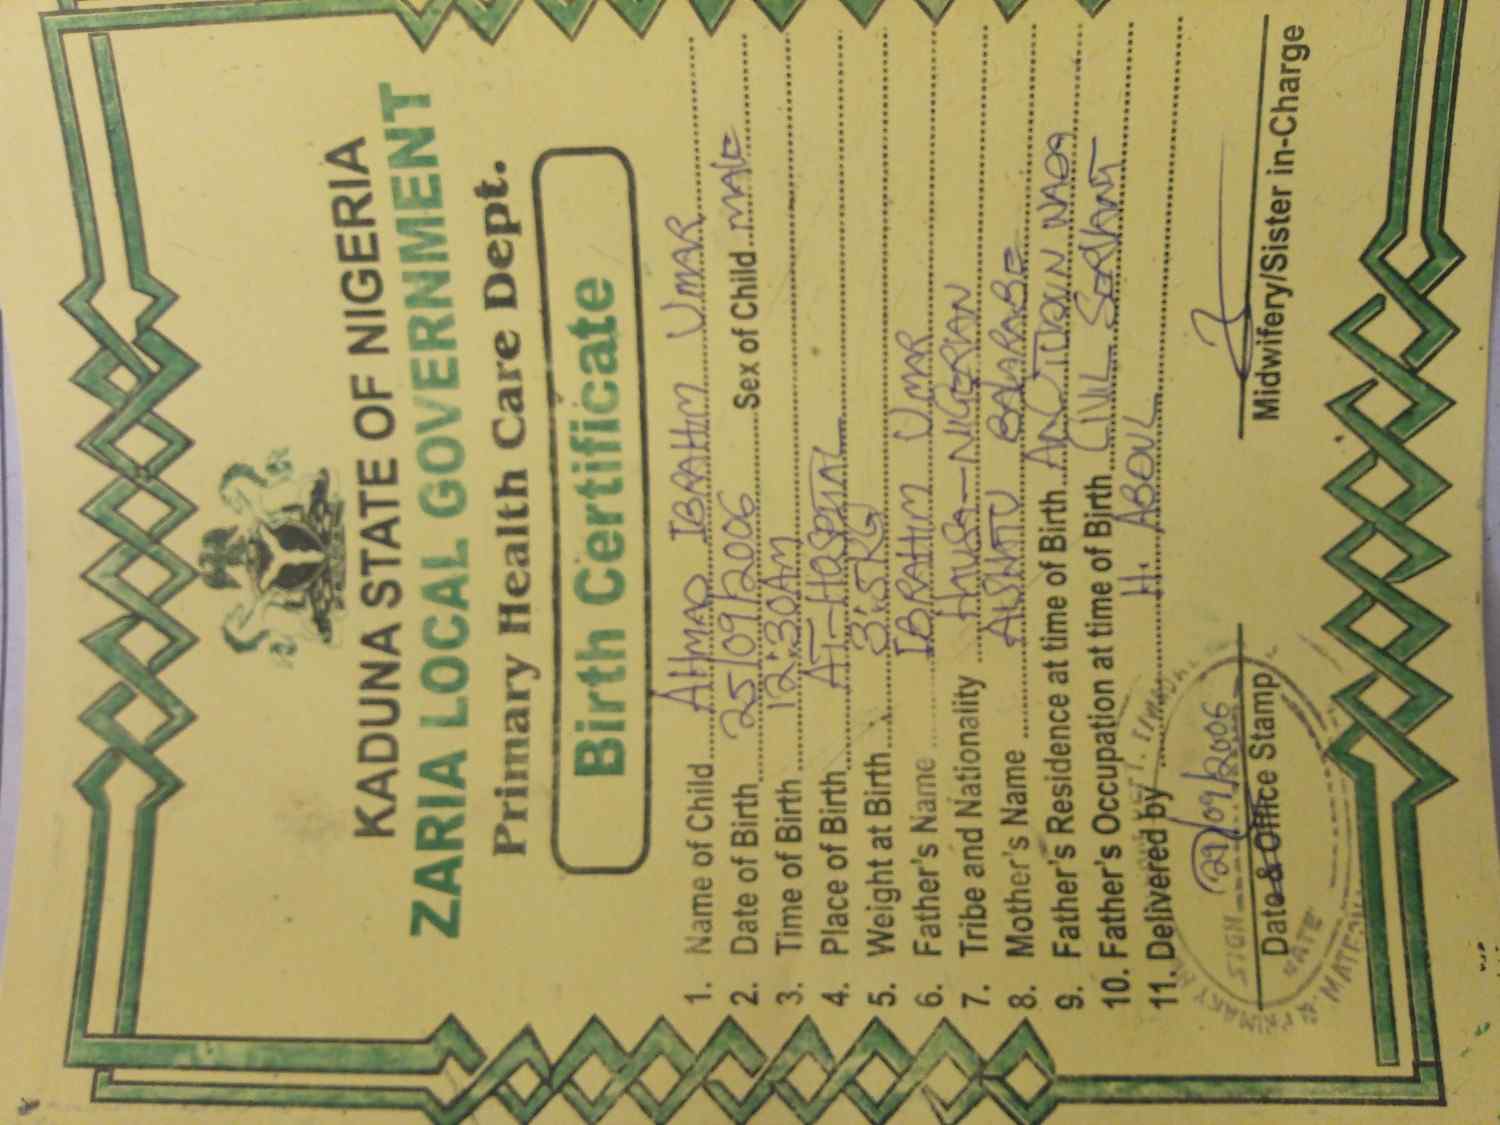 KADUNA STATE OF NIGERIA
ZARIA LOCAL GOVERNMENT
Primary Health Care Dept.
Birth Certificate
1. Name of Child AHMAD IBRAHIM UMAR
2. Date of Birth 25/09/2006 Sex of Child MALE
3. Time of Birth 12:30AM
4. Place of Birth AT-HOSPITAL
5. Weight at Birth 3.5KG
6. Father's Name IBRAHIM UMAR
7. Tribe and Nationality HAUSA-NIGERIAN
8. Mother's Name BALARABE
9. Father's Residence at time of Birth
10. Father's Occupation at time of Birth CIVIL SERVANT
11. Delivered by H. ABDUL
/09/2006
Date & Office Stamp
Midwifery/Sister in-Charge
SIGN
DATE